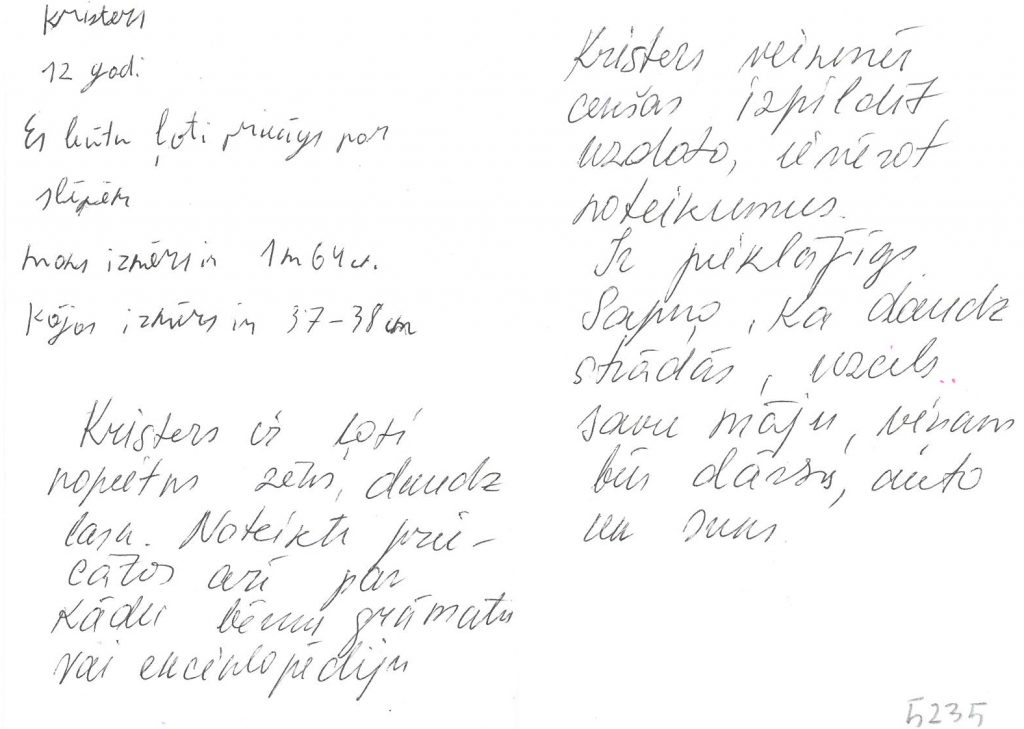 Kristers
12 godi
Es būtu ļoti priecīgs par
slēpēm
mans izmērs ir 1m 64 cm.
Kājas izmērs ir 37-38 cm
Kristers ir ļoti
nopietns zēns, daudz
lasa. Noteikti prie-
cātos arī par
kādu bērnu grāmatu
vai enciklopēdiju
Kristers vienmēr
cenšas izpildīt
uzdoto, ievērot
noteikumus.
Ir pieklājīgs.
Sapņo, ka daudz
strādās, uzcels
savu māju, viņam
būs dārzs, auto
un suns.
5235